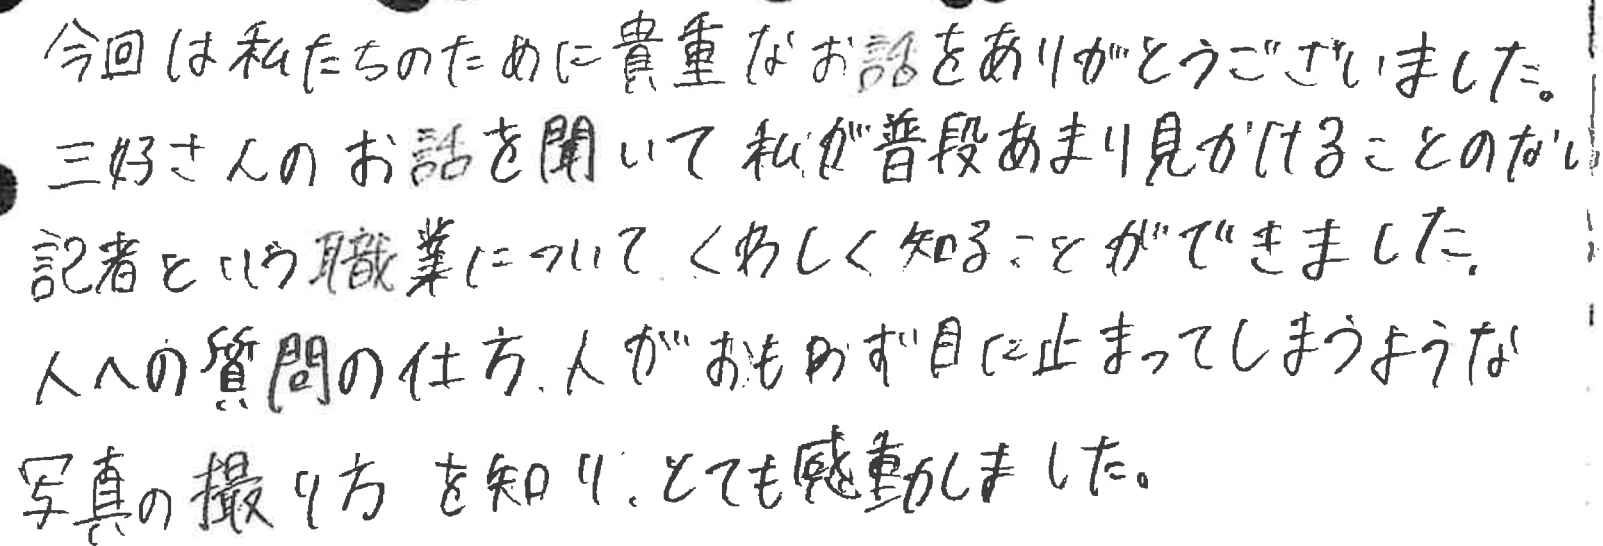 今回は私たちのために貴重なお話をありがとうございました。
三好さんのお話を聞いて私が普段あまり見かけることのない
記者という職業についてくわしく知ることができました。
人への質問の仕方、人がおもわず目に止まってしまうような
写真の撮り方を知り、とても感動しました。